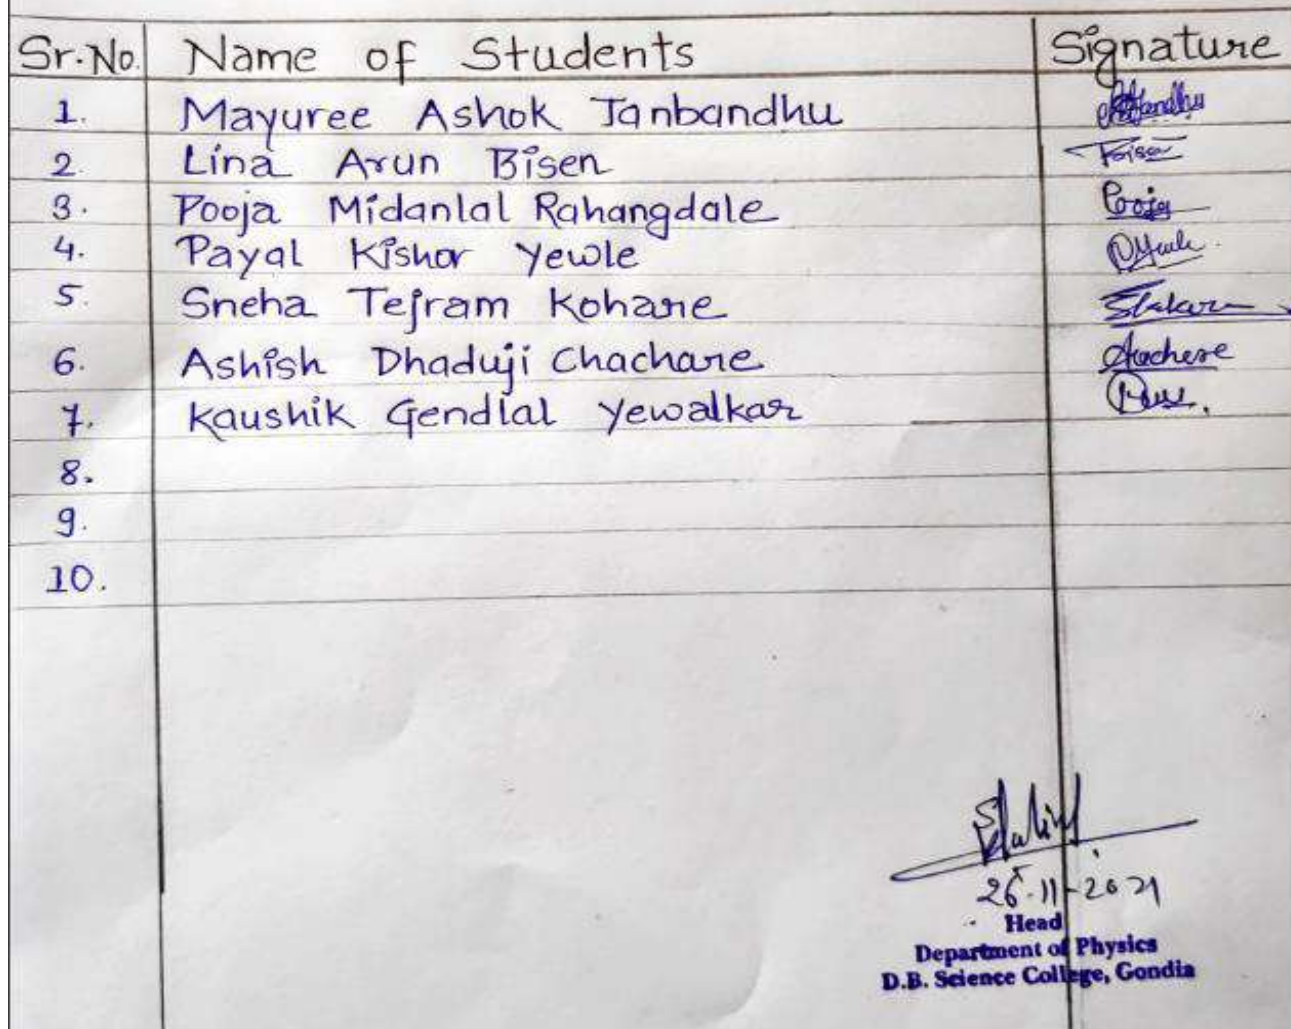 Sr.No. Name of Students Signature
1. Mayuree Ashok Tanbandhu
2. Lina Arun Bisen
3. Pooja Midanlal Rahangdale Pooja
4. Payal Kishor Yewle
5. Sneha Tejram Kohare
6. Ashish Dhaduji Chachare
7. Kaushik Gendlal Yewalkar
8.
9.
10.
26-11-2021
Head
Department of Physics
D.B. Science College, Gondia